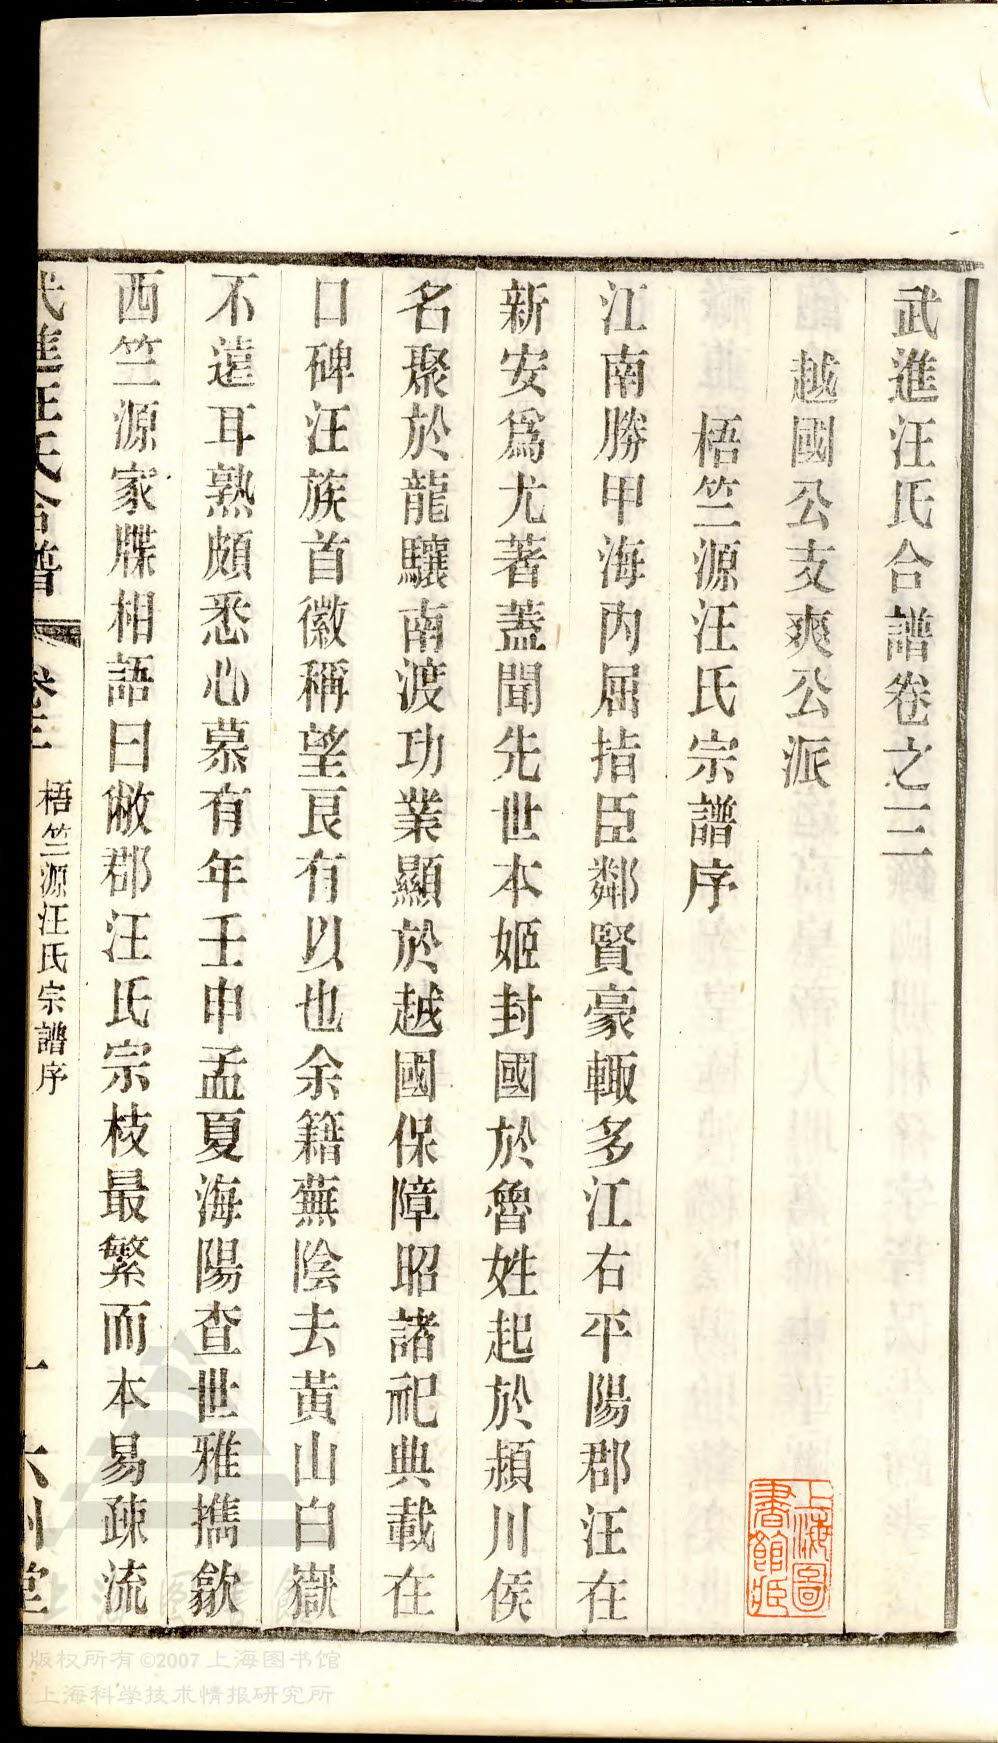 武進汪氏合譜卷之三
越國公支爽公派
梧竺源汪氏宗譜序
江南勝甲海内屈指臣鄰賢豪輙多江右平陽郡汪在
新安爲尤著蓋聞先世本姬封國於魯姓起於潁川侯
名聚於龍驤南渡功業顯於越國保障昭諸祀典載在
口碑汪族首徽稱望良有以也余籍蕪陰去黃山白嶽
不遠耳熟頗悉心慕有年壬申孟夏海陽查世雅攜歙
西竺源家牒相語曰敝郡汪氏宗枝最繁而本易疎流
武進汪氏合譜
卷三
梧竺源汪氏宗譜序
一
六州堂
上海圖書館藏
上海图书馆
版权所有©2007上海图书馆
上海科学技术情报研究所